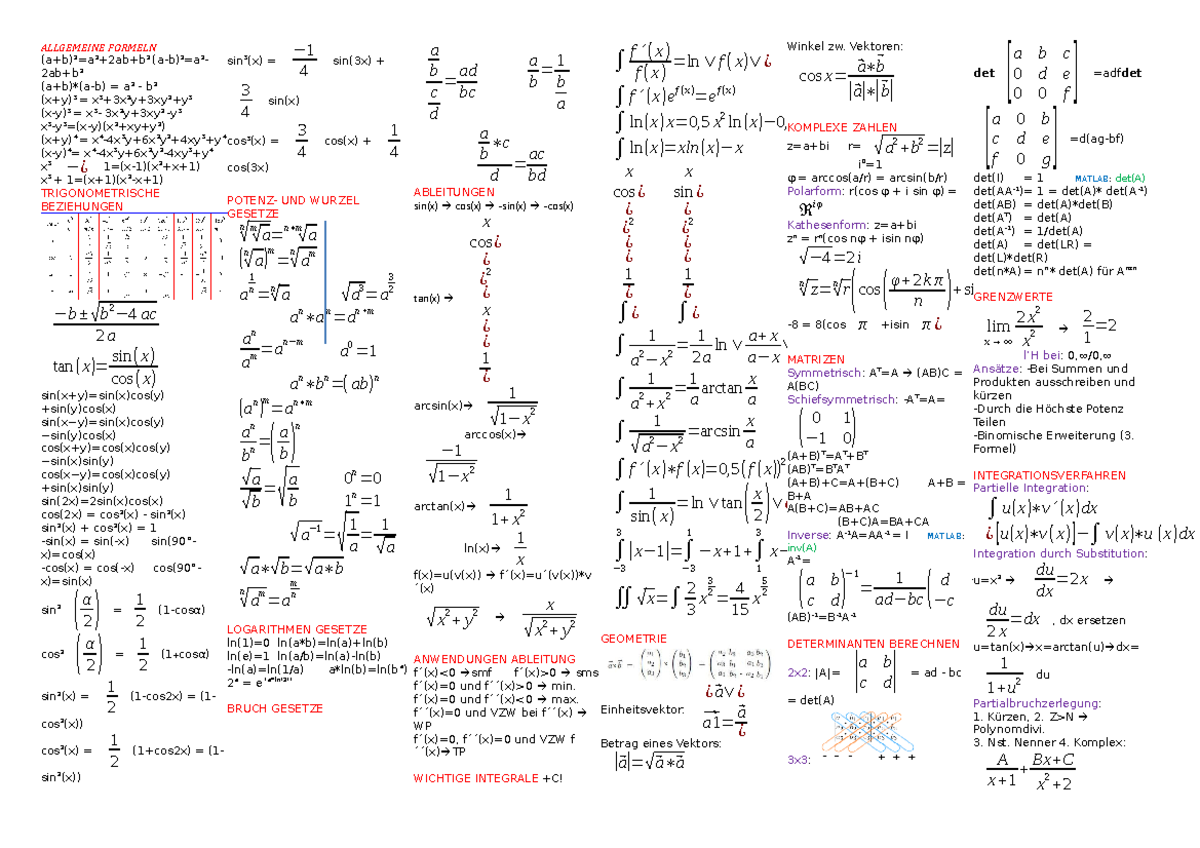 ALLGEMEINE FORMELN
(a+b)²=a²+2ab+b²(a-b)²=a²-
2ab+b²
(a+b)*(a-b) = a² - b²
(x+y)³ = x³+3x²y+3xy²+y³
(x-y)³ = x³- 3x²y+3xy²-y³
x³-y³=(x-y)(x²+xy+y²)
(x+y)⁴= x⁴-4x³y+6x²y²+4xy³+y⁴
(x-y)⁴= x⁴-4x³y+6x²y²-4xy³+y⁴
x³ −¿ 1=(x-1)(x²+x+1)
x³+ 1=(x+1)(x²-x+1)
TRIGONOMETRISCHE
BEZIEHUNGEN
−b±√b²−4ac
2a
tan(x)=sin(x)
cos(x)
sin(x+y)=sin(x)cos(y)
+sin(y)cos(x)
sin(x−y)=sin(x)cos(y)
−sin(y)cos(x)
cos(x+y)=cos(x)cos(y)
−sin(x)sin(y)
cos(x−y)=cos(x)cos(y)
+sin(x)sin(y)
sin(2x)=2sin(x)cos(x)
cos(2x) = cos²(x) - sin²(x)
sin²(x) + cos²(x) = 1
-sin(x) = sin(-x) sin(90°-
x)=cos(x)
-cos(x) = cos(-x) cos(90°-
x)=sin(x)
sin² (α/2) = 1/2 (1-cosα)
cos² (α/2) = 1/2 (1+cosα)
sin²(x) = 1/2 (1-cos2x) = (1-
cos²(x))
cos²(x) = 1/2 (1+cos2x) = (1-
sin²(x))
sin³(x) = −1/4 sin(3x) +
3/4 sin(x)
cos³(x) = 3/4 cos(x) + 1/4
cos(3x)
POTENZ- UND WURZEL
GESETZE
ⁿ√ᵐ√a=ⁿ*ᵐ√a
(ⁿ√a)ᵐ=ⁿ√aᵐ
a^(1/n)=ⁿ√a √a³=a^(3/2)
aⁿ*aᵐ=aⁿ⁺ᵐ
aⁿ/aᵐ=aⁿ⁻ᵐ a⁰=1
aⁿ*bⁿ=(ab)ⁿ
(aⁿ)ᵐ=aⁿ*ᵐ
aⁿ/bⁿ=(a/b)ⁿ
√a/√b=√(a/b) 0ⁿ=0
1ⁿ=1
√a⁻¹=√(1/a)=1/√a
√a*√b=√a*b
ⁿ√aᵐ=a^(m/n)
LOGARITHMEN GESETZE
ln(1)=0 ln(a*b)=ln(a)+ln(b)
ln(e)=1 ln(a/b)=ln(a)-ln(b)
-ln(a)=ln(1/a) a*ln(b)=ln(bᵃ)
BRUCH GESETZE
a/b / c/d = ad/bc a/b = 1 / b/a
a/b *c / d = ac/bd
ABLEITUNGEN
sin(x) → cos(x) → -sin(x) → -cos(x)
x
cos¿
¿
¿²
¿
tan(x) →
x
¿
¿
1
¿
arcsin(x)→ 1/√1−x²
arccos(x)→
−1/√1−x²
arctan(x)→ 1/1+x²
ln(x)→ 1/x
f(x)=u(v(x)) → f´(x)=u´(v(x))*v
´(x)
√x²+y² → x/√x²+y²
ANWENDUNGEN ABLEITUNG
f´(x)<0 →smf f´(x)>0 → sms
f´(x)=0 und f´´(x)>0 → min.
f´(x)=0 und f´´(x)<0 → max.
f´´(x)=0 und VZW bei f´´(x) →
WP
f´(x)=0, f´´(x)=0 und VZW f
´´(x)→TP
WICHTIGE INTEGRALE +C!
∫ f´(x)/f(x)=ln∨f(x)∨¿
∫ f´(x)e^f(x)=e^f(x)
∫ ln(x)x=0,5x²ln(x)−0,
∫ ln(x)=xln(x)−x
x x
cos¿ sin¿
¿ ¿
¿² ¿²
¿ ¿
¿ ¿
1 1
¿ ¿
∫¿ ∫¿
∫ 1/a²−x²=1/2a ln∨a+x/a−x
∫ 1/a²+x²=1/a arctan x/a
∫ 1/√a²−x²=arcsin x/a
∫ f´(x)*f(x)=0,5(f(x))²
∫ 1/sin(x)=ln∨tan(x/2)∨
∫₋₃³ |x−1|=∫₋₃¹ −x+1+∫₁³ x−
∬√x=∫2/3 x^(3/2)=4/15 x^(5/2)
GEOMETRIE
¿a⃗∨¿
Einheitsvektor: a1⃗=a⃗/¿
Betrag eines Vektors:
|a⃗|=√a⃗*a⃗
Winkel zw. Vektoren:
cosx=a⃗*b⃗/|a⃗|*|b⃗|
KOMPLEXE ZAHLEN
z=a+bi r= √a²+b²=|z|
i⁰=1
φ= arccos(a/r) = arcsin(b/r)
Polarform: r(cos φ + i sin φ) =
ℜ^iφ
Kathesenform: z=a+bi
zⁿ = rⁿ(cos nφ + isin nφ)
√−4=2i
ⁿ√z=ⁿ√r(cos(φ+2kπ/n)+si
-8 = 8(cos π +isin π¿
MATRIZEN
Symmetrisch: Aᵀ=A → (AB)C =
A(BC)
Schiefsymmetrisch: -Aᵀ=A=
(0 1
−1 0)
(A+B)ᵀ=Aᵀ+Bᵀ
(AB)ᵀ=BᵀAᵀ
(A+B)+C=A+(B+C) A+B =
B+A
A(B+C)=AB+AC
(B+C)A=BA+CA
Inverse: A⁻¹A=AA⁻¹ = I MATLAB:
inv(A)
A⁻¹=
(a b
c d)⁻¹=1/ad−bc (d
−c
(AB)⁻¹=B⁻¹A⁻¹
DETERMINANTEN BERECHNEN
2x2: |A|= |a b
c d| = ad - bc
= det(A)
3x3: - - - + + +
det [a b c
0 d e
0 0 f] =adfdet
[a 0 b
c d e
f 0 g] =d(ag-bf)
det(I) = 1 MATLAB: det(A)
det(AA⁻¹)= 1 = det(A)* det(A⁻¹)
det(AB) = det(A)*det(B)
det(Aᵀ) = det(A)
det(A⁻¹) = 1/det(A)
det(A) = det(LR) =
det(L)*det(R)
det(n*A) = nⁿ* det(A) für Aⁿˣⁿ
GRENZWERTE
lim x→∞ 2x²/x² → 2/1=2
l'H bei: 0,∞/0,∞
Ansätze: -Bei Summen und
Produkten ausschreiben und
kürzen
-Durch die Höchste Potenz
Teilen
-Binomische Erweiterung (3.
Formel)
INTEGRATIONSVERFAHREN
Partielle Integration:
∫u(x)*v´(x)dx
¿[u(x)*v(x)]−∫v(x)*u(x)dx
Integration durch Substitution:
u=x² → du/dx=2x →
du/2x=dx , dx ersetzen
u=tan(x)→x=arctan(u)→dx=
1/1+u² du
Partialbruchzerlegung:
1. Kürzen, 2. Z>N →
Polynomdivi.
3. Nst. Nenner 4. Komplex:
A/x+1+Bx+C/x²+2